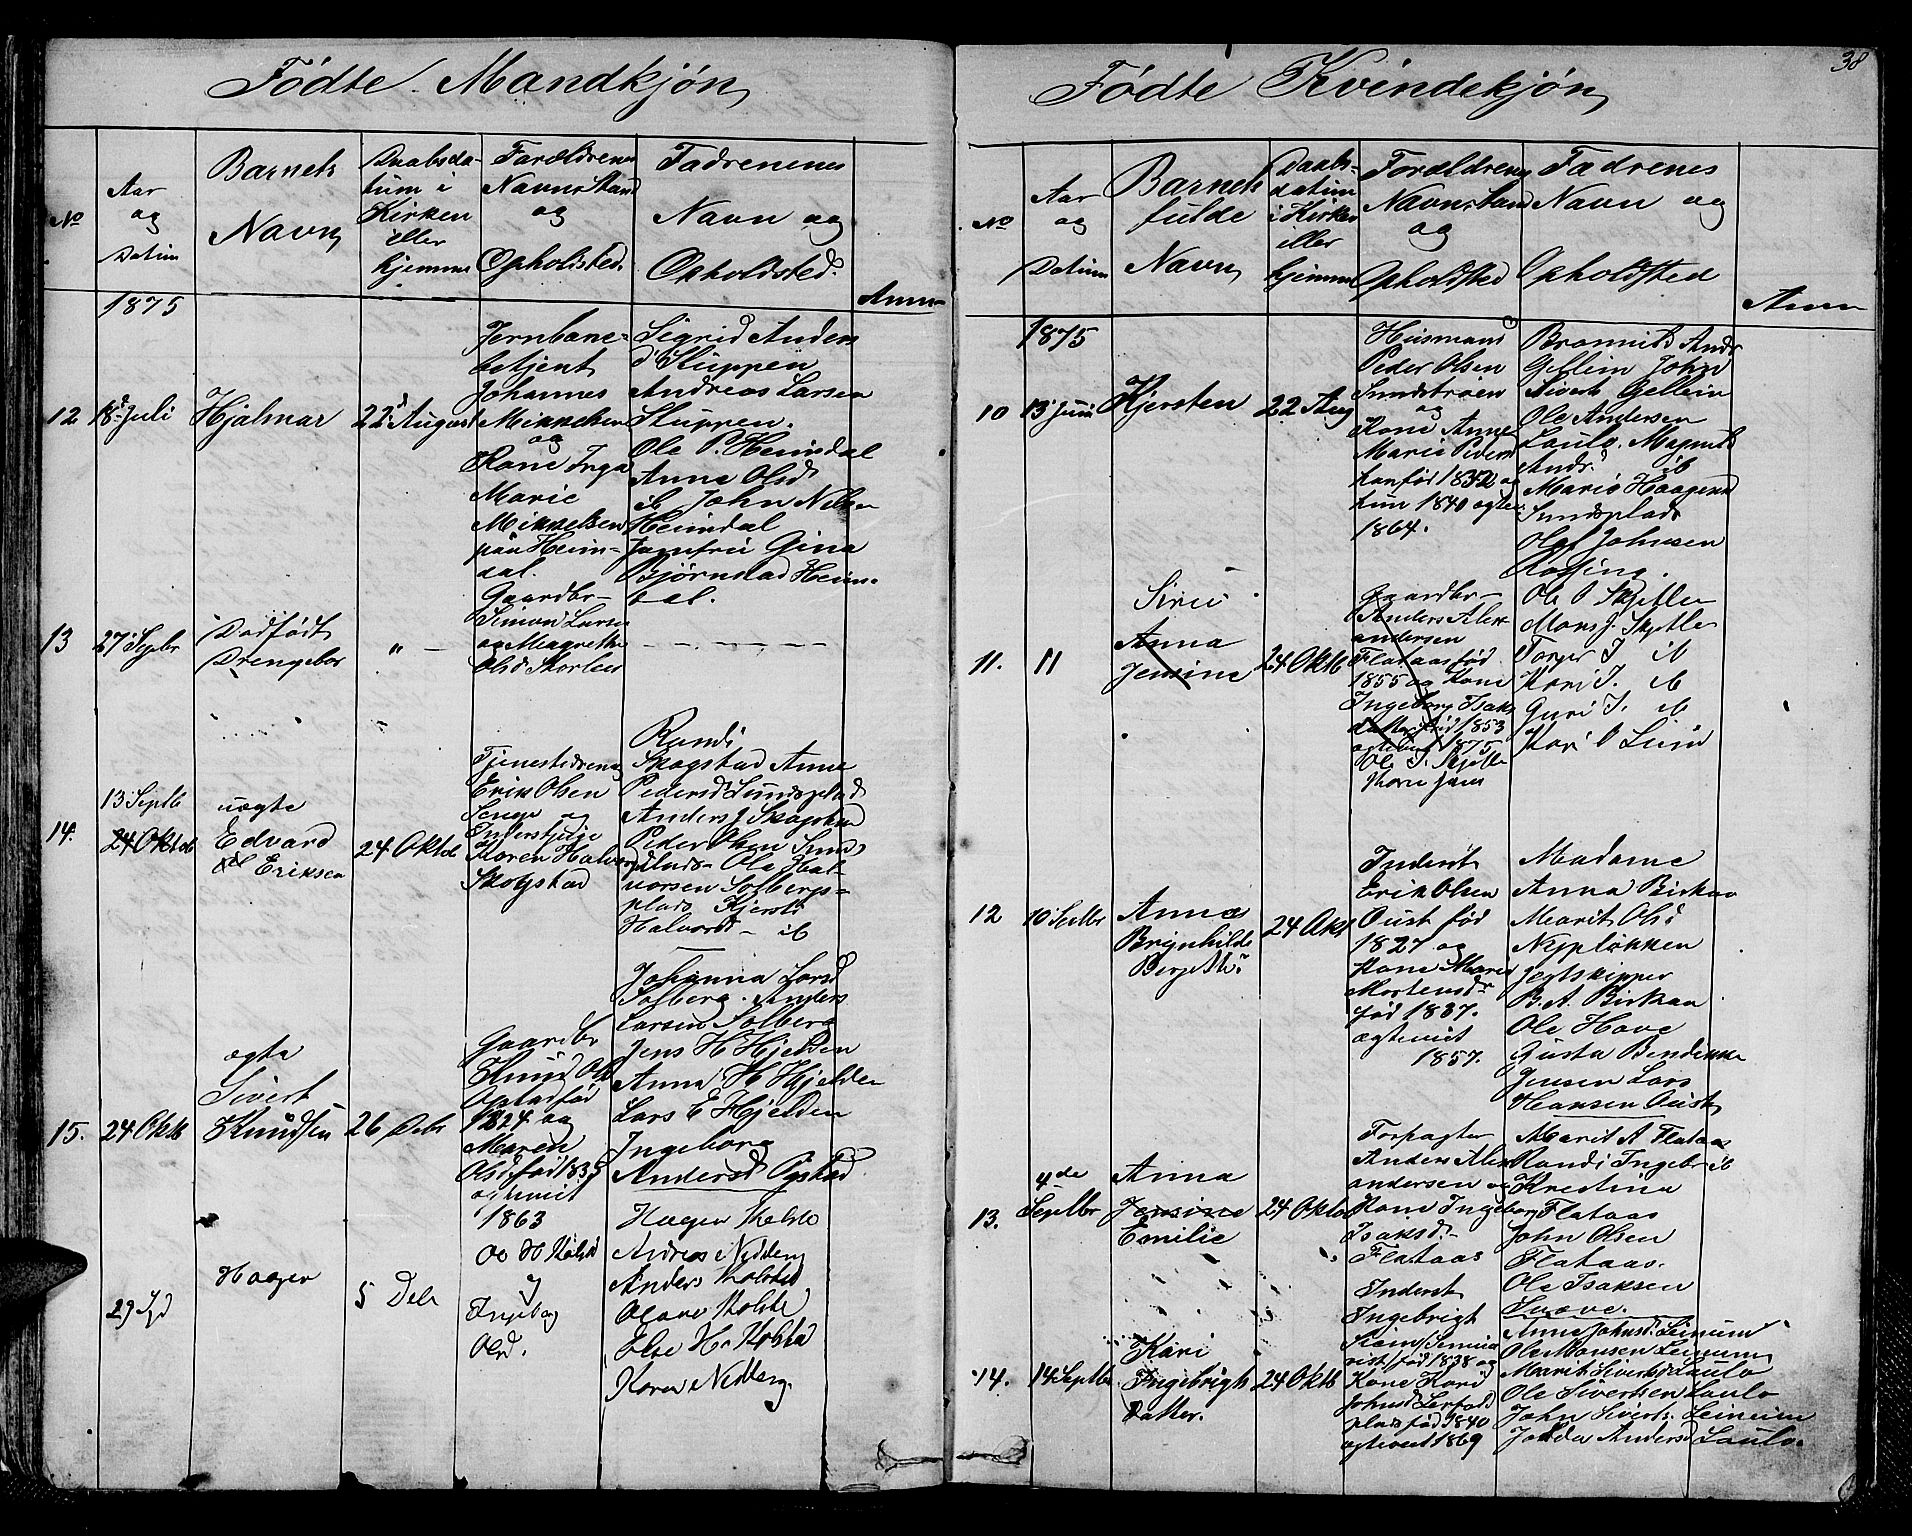 Fødte Mandkjøn
No
Aar
og
Datum
Barnets
Navn
Daabsda-
tum i
Kirken
eller
hjemme
Forældrenes
Navn Stand
og
Opholdsted.
Fadrenenes
Navn og
Opholdsted.
Anm
1875
12
18d Juli
Hjalmar
22d August
Jernbane-
betjent
Johannes
Mikkelsen
og
Kone Inga
Marie
Mikkelsen
paa Heim-
dal.
Sigrid Anders
d. Sluppen
Andreas Larsen
Sluppen.
Ole P. Heimdal
Anna Olsd
ib John Nilsen
Heimdal
Jomfru Gina
Bjørnstad Heim-
dal.
13
27 Sepbr
Dødfødt
Drengebar
" -
Gaardbr-
Simon Larsen
og Magrethe
Olsd Storlen
14.
13 Septb
24 Oktob
uægte
Edvard
Eriksen
24 Oktb
Tjenestedreng
Erik Olsen
og
Inderstpige
Karen Halvorsd
Skogstad
Randi
Skogstad Anne
Pedersd Sundsplad
Anders J Skogstad
Peder Olsen Sund
plads - Ole Hal-
vorsen Solbergs-
plads Kjersti
Halvorsd - ib
15.
24 Oktb
ægte
Sivert
Knudsen
26 Debr
Gaardbr
Knud Ols
Opstad fød
1824 og
Maren
Olsd fød 1835
ægteviet
1863
Johanna Larsd
Solberg. Anders
Larsen Solberg
Jens H Hjelden
Anna H Hjelden
Lars E Hjelden
Ingeborg
Andersd Opstad
29 Sep
Haagen
5 Deb
Ole H Kolstd
og
Ingebog
Olsd.
Haagen Kolsto
Andreas Nedberg
Anders Kolsted
Olave Kolste
Else H. Kolstad
Karen Nedberg.
38
Fødte Kvindekjøn
No
Aar
og
Datum
Barnets
fulde
Navn
Daabs-
datum
i Kirken
eller
hjemme
Forældrenes
Navn Stand
og
Opholdsted
Fadrenes
Navn og
Opholdsted
Anm
1875
10
13 Juni
Kjersten
22 Aug
Husmand
Peder Olsen
Sundstrøen
og
Kone Anne
Marie Peders
han fød 1832 og
hun 1840 ægtev.
1864.
Bromnild Andr
Gellein John
Sivert Gellein
Ole Andersen
Laulo. Magnild
Andr. ib
Marie Haagensd
Sundsplads
Olaf Johnsen
Røssing.
11.
11
Siri
Anna
Jensine
24 Oktb
Gaardbr-
Anders Alex
andersen
Flataas fød
1855 og Kone
Ingeborg Isaks
datter fød 1853
ægteviet 1875
Ole J. Skjetle
Kone Jens
Ole O Skjetle
Mons J. Skjetle
Torger J. ib
Kari J. ib
Guri J. ib
Kari O Lium
12
10 Septbr
Annæs
Brynhilde
Bergette
24 Okt
Inderst
Erik Olsen
Oust fød
1827 og
Kone Maria
Mortensdr
fød 1837.
ægteviet
1857.
Madame
Anna Birkaa
Marit Olsd
Nypløkken
Jegtskipper
B. A. Birkaa
Ole Hove
Gusta Bendikke
Jensen Lars
Hansen Oust
13.
4de
Septbr
Anna
Jensine
Emilie
24 Oktb
Forpagter
Anders Alex
andersen og
Kone Ingeborg
Isaksd.
Flataas
Marit A Flataas
Randi Ingebr ib
Kristina
Flataas
John Olsen
Flataas.
Ole Isaksen
Svove.
14.
14 Septbr
Kari
Ingebrigts
Datter.
24 Oktb
Inderst
Ingebrigt
fød 1838 og
Kone Kari
Johnsd
plads fød 1840
ægteviet 1869
Anne Johnsd. Leinum
Ole Monsen Leinum
Marit Sivertsd Laulo
Ole Sivertsen Laulo
John Siverts. Leinum
Anders Laulo.